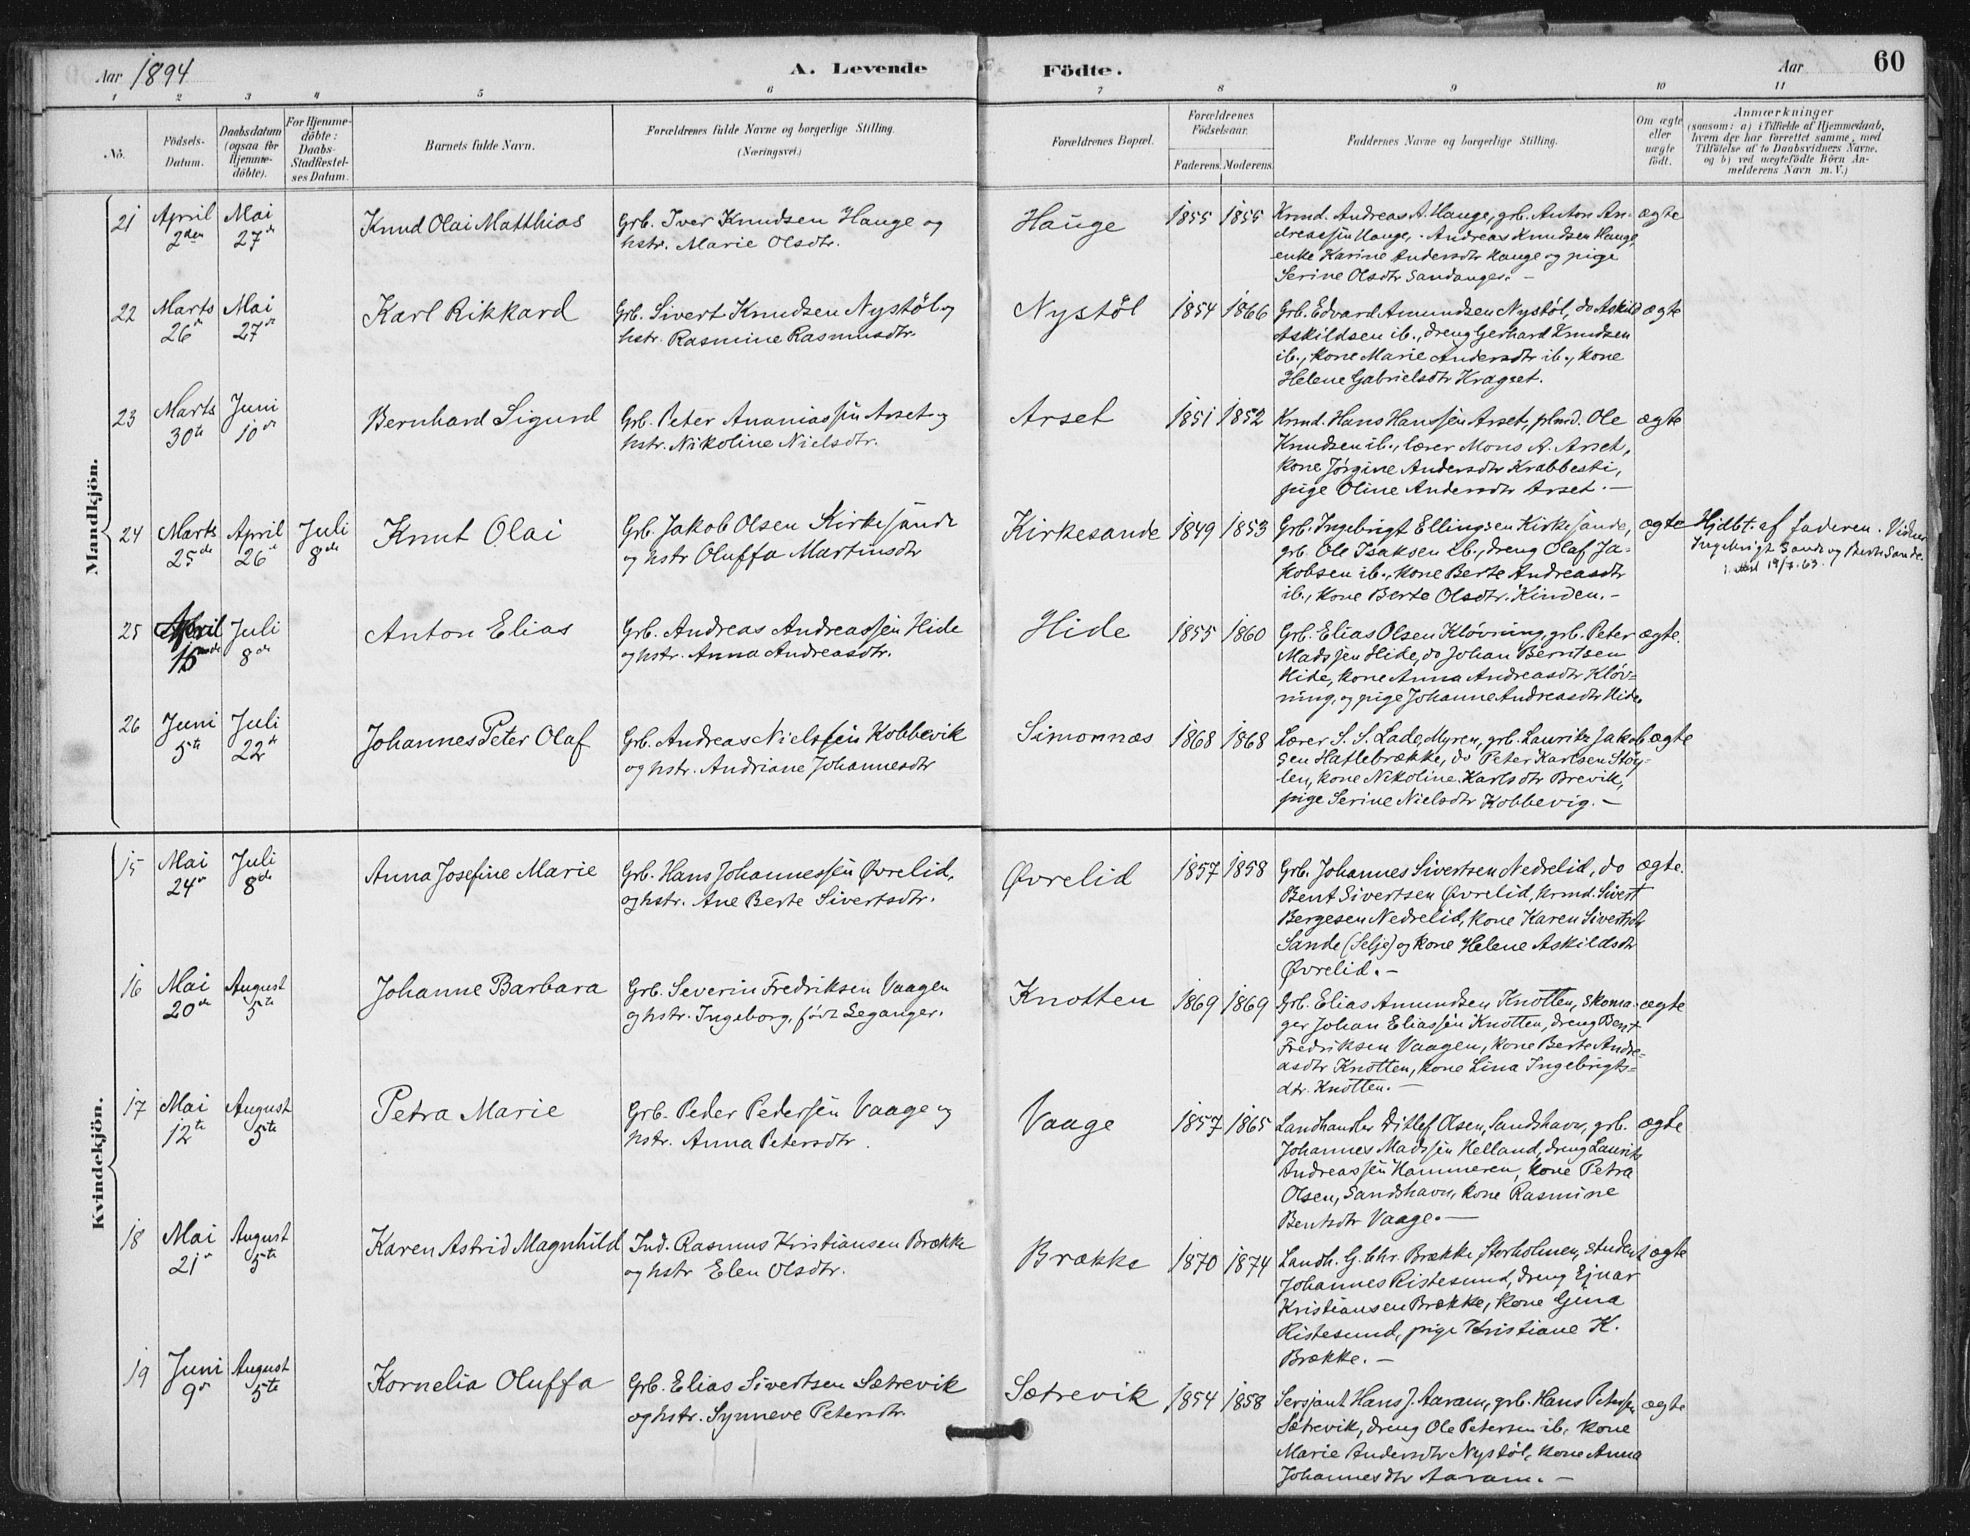 Aar 1894
A. Levende Födte.
Aar
60
1 2 3 4 5 6 7 8 9 10 11
No.
Födsels-Datum.
Daabsdatum (ogsaa for Hjemme-döbte).
For Hjemme-döbte: Daabs-Stadfæstel-ses Datum.
Barnets fulde Navn.
Forældrenes fulde Navne og borgerlige Stilling.
(Næringsvei.)
Forældrenes Bopæl.
Forældrenes Födselsaar.
Faderens. Moderens.
Faddernes Navne og borgerlige Stilling.
Om ægte eller uægte födt.
Anmærkninger
(saasom: a) i Tilfælde af Hjemmedaab,
hvem der har forrettet samme, med
Tilföielse af to Daabsvidners Navne,
og b) ved uægtefödte Börn An-
melderens Navn m. V.)
Mandkjön.
21 April 2den Mai 27de Knud Olai Matthias Grb. Iver Knudsen Hauge og
hstr. Marie Olsdtr.
Hauge 1855 1855 Krmd. Andreas A. Hauge, grb. Anton An-
dreassen Hauge, Andreas Knudsen Hauge,
enke Karine Andersdtr Hauge og pige
Serine Olsdtr Sandanger. –
ægte
22 Marts 26de Mai 27de Karl Rikkard Grb. Sivert Knudsen Nystøl og
hstr. Rasmine Rasmusdtr.
Nystøl 1854 1866 Grb. Edvard Amundsen Nystøl, do Askild
Askildsen ib., dreng Gerhard Knudsen
ib., kone Marie Andersdtr ib., kone
Helene Gabrielsdtr Kragset.
ægte
23 Marts 30te Juni 10de Bernhard Sigurd Grb. Peter Ananiassen Arset og
hstr. Nikoline Nielsdtr.
Arset 1851 1852 Krmd. Hans Hanssen Arset, plmd. Ole
Knudsen ib., lærer Mons A. Arset,
kone Jørgine Andersdtr Krabbesti,
pige Oline Andersdtr Arset. –
ægte
24 Marts 25de April 26de Juli 8de Knut Olai Grb. Jakob Olsen Kirkesande
og hstr Oluffa Martinsdtr
Kirkesande 1849 1853 Grb. Ingebrigt Ellingsen Kirkesande,
grb. Ole Isaksen ib., dreng Olaf Ja-
kobsen ib., kone Berte Andreasdtr
ib., kone Berte Olsdtr. Kinden. –
ægte Hjdbt. af Faderen. Vidner
Ingebrigt Sande og Berte Sande.
25 April 15de Juli 8de Anton Elias Grb. Andreas Andreassen Hide
og hstr. Anna Andreasdtr.
Hide 1855 1860 Grb. Elias Olsen Kløvning, grb. Peter
Madssen Hide, do Johan Berntsen
Hide, kone Anna Andreasdtr Kløv-
ning, og pige Johanne Andreasdtr Hide.
ægte.
26 Juni 5te Juli 22de Johannes Peter Olaf Grb. Andreas Nielssen Kobbevik
og hstr. Andriane Johannesdtr
Simonnæs 1868 1868 Lærer S. S. Lade, Myren, grb. Lauritz Jakob-
sen Hatlebrække, do Peter Karlsen Støy-
len, kone Nikoline Karlsdtr Brevik,
pige Serine Nielsdtr Kobbevig. –
ægte
Kvindekjön.
15 Mai 24de Juli 8de Anna Josefine Marie Grb. Hans Johannessen Øvrelid,
og hstr. Ane Berte Sivertsdtr.
Øvrelid 1857 1858 Grb. Johannes Sivertsen Nedrelid, do
Bent Sivertsen Øvrelid, krmd. Sivert
Bergesen Nedrelid, kone Karen Sivertsdtr
Sande (Selje) og kone Helene Askildsdtr
Øvrelid. –
ægte.
16 Mai 20de August 5te Johanne Barbara Grb. Severin Fredriksen Vaagen
og hstr. Ingeborg, født Leganger.
Knotten 1869 1869 Grb. Elias Amundsen Knotten, skoma-
ger Johan Eliassen Knotten, dreng Bent
Fredriksen Vaagen, kone Berte Andre-
asdtr Knotten, kone Lina Ingebrigts-
dtr. Knotten. –
ægte
17 Mai 12te August 5te Petra Marie Grb. Peder Pedersen Vaage og
hstr. Anna Petersdtr.
Vaage 1857 1865 Landhandler Ditlef Olsen, Sandshavn, grb.
Johannes Madssen Helland, dreng Laurits
Andreassen Hammeren, kone Petra
Olsen, Sandshavn, kone Rasmine
Bentsdtr Vaage. –
ægte
18 Mai 21de August 5te Karen Astrid Magnhild Ind. Rasmus Kristiansen Brække
og hstr Elen Olsdtr.
Brække 1870 1874 Landh. G. Chr. Brække, Storholmen, student
Johannes Ristesund, dreng Ejnar
Kristiansen Brække, kone Gina
Ristesund, pige Kristiane K.
Brække. –
ægte
19 Juni 9de August 5te Kornelia Oluffa Grb. Elias Sivertsen Sætrevik
og hstr. Synneve Petersdtr.
Sætrevik 1854 1858 Sersjant Hans J. Aaram, grb. Hans Peterssen
Sætrevik, dreng Ole Petersen ib., kone
Marie Andersdtr Nystøl, kone Anna
Johannesdtr Aaram. –
ægte